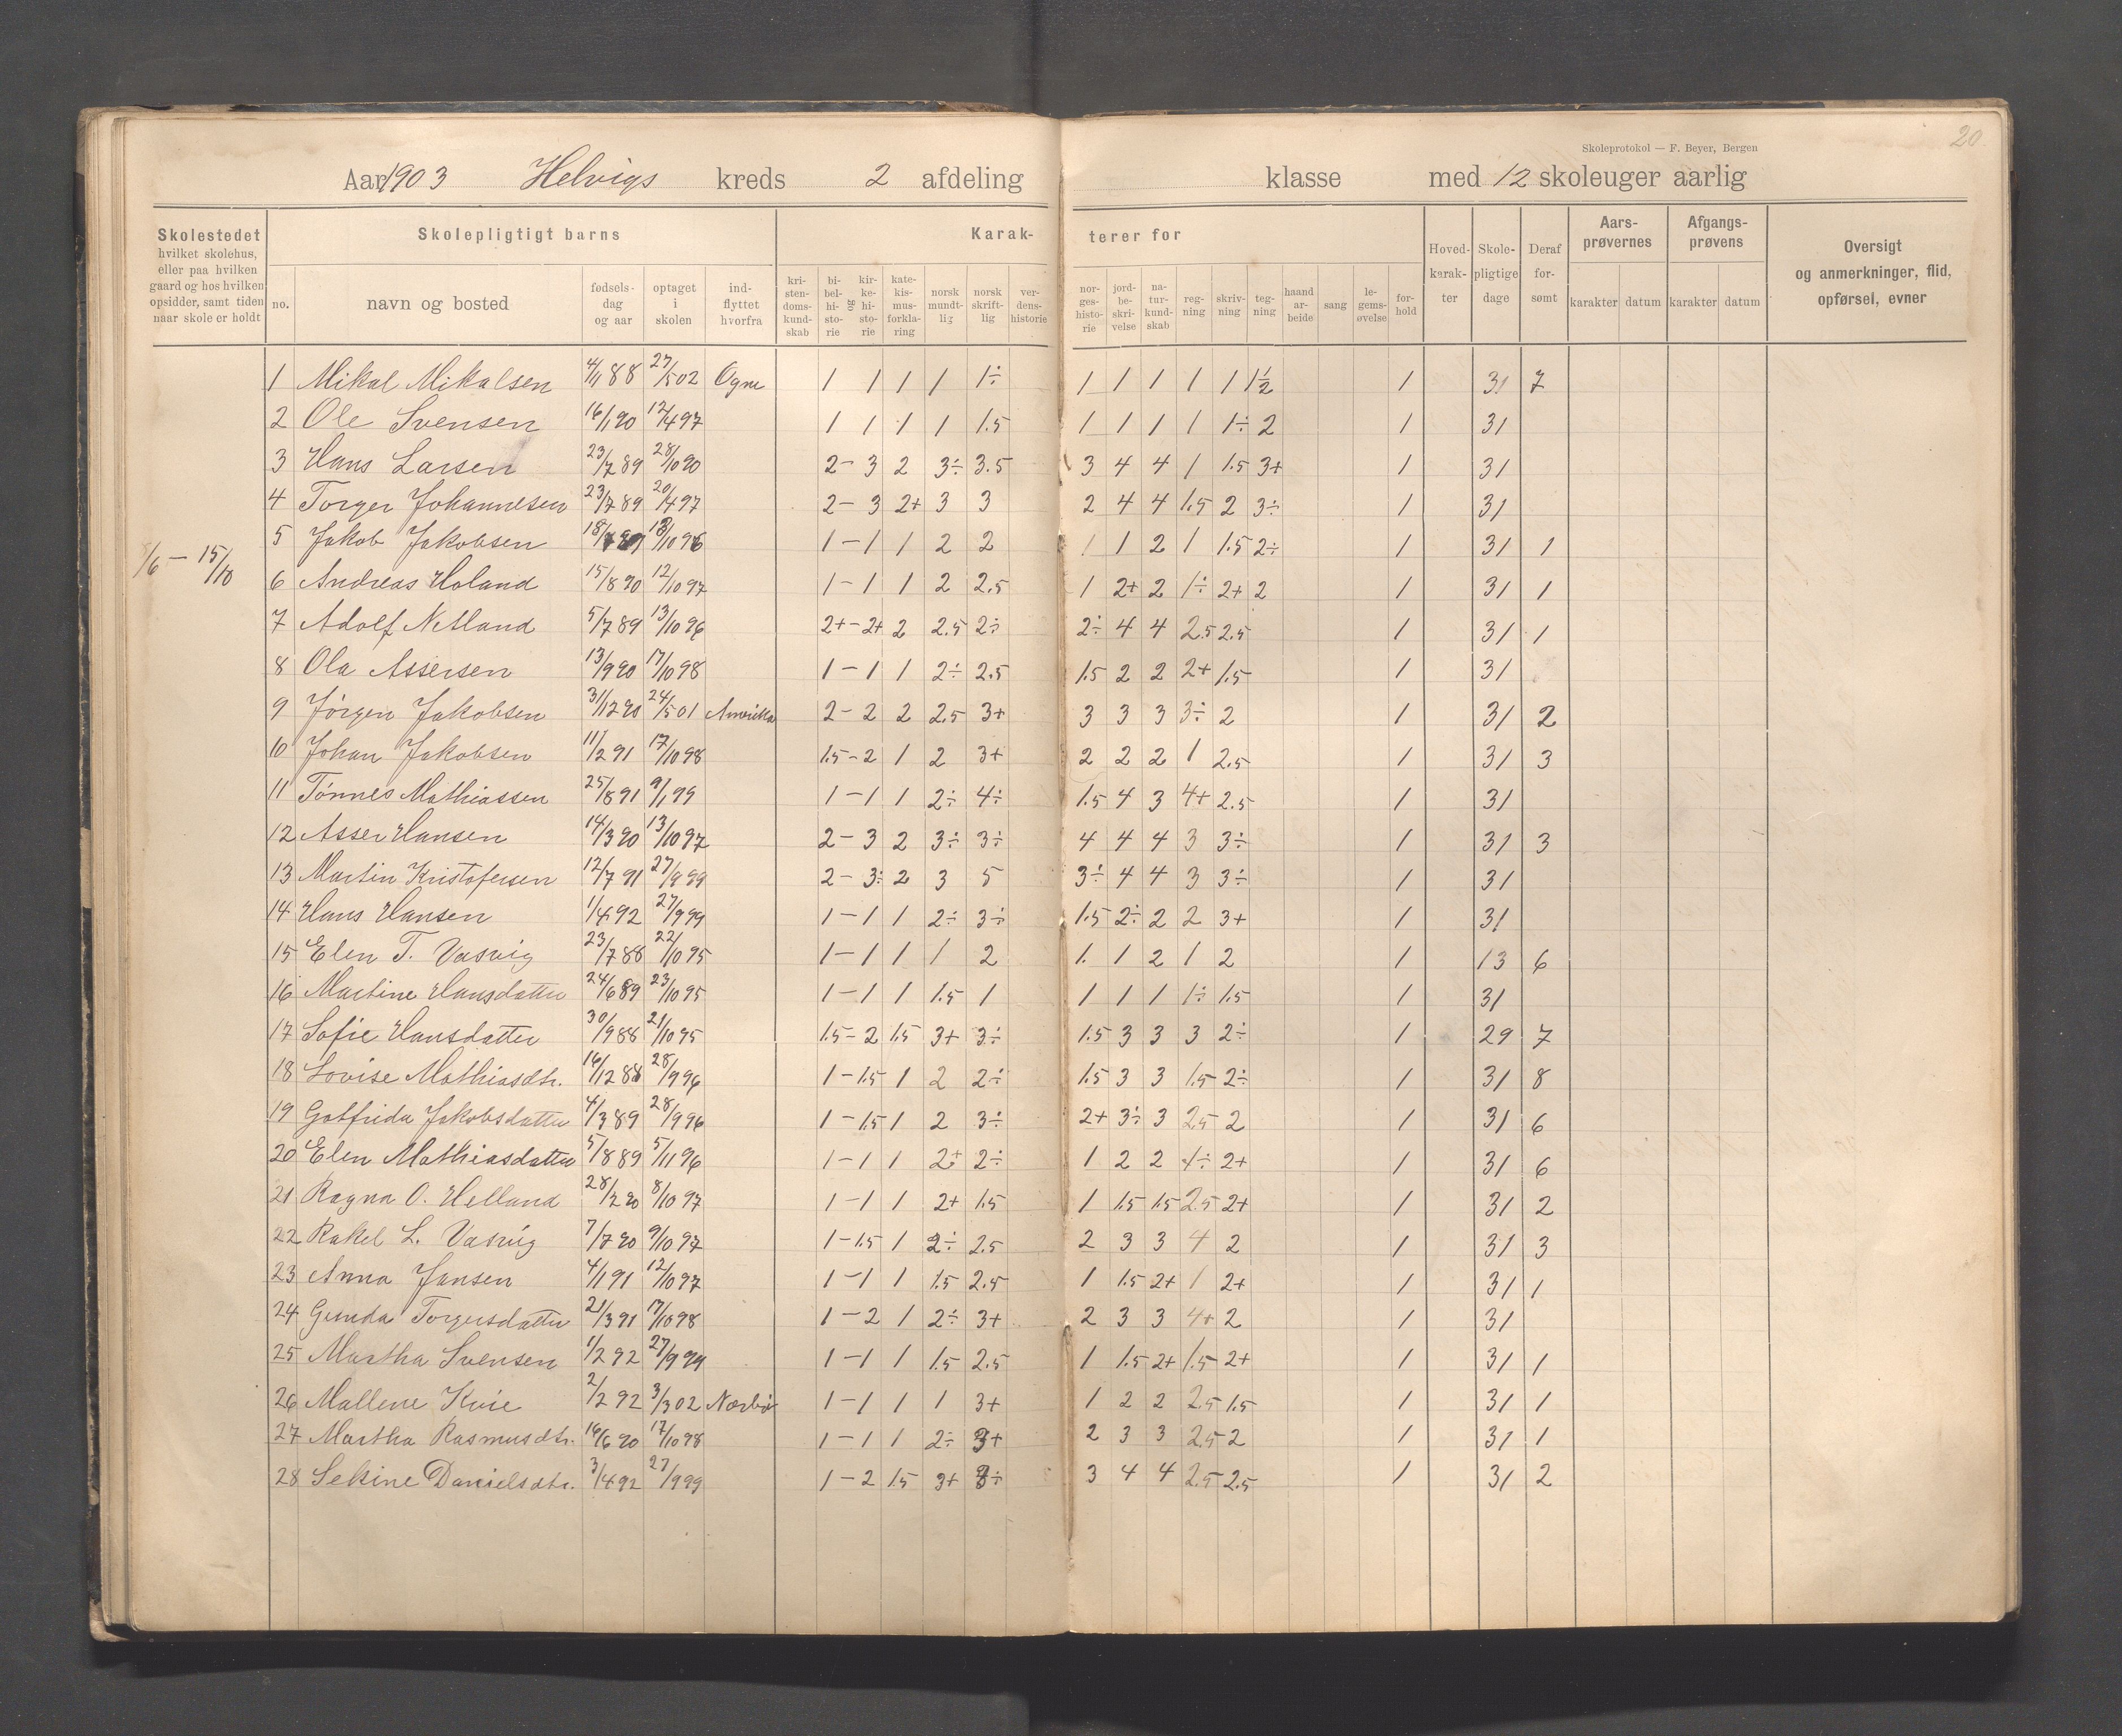 20
Skoleprotokol — F. Beyer, Bergen
Aar 1903 Helvigs kreds 2 afdeling klasse med 12 skoleuger aarlig
Skolestedet hvilket skolehus, eller paa hvilken gaard og hos hvilken opsidder, samt tiden naar skole er holdt
Skolepligtigt barns
Karak- terer for
no. navn og bosted fødsels- dag og aar optaget i skolen ind- flyttet hvorfra
kri- sten- doms- kund- skab bi- bel- hi- sto- rie og kir- ke- hi- sto- rie kate- kis- mus- forkla- ring norsk mundt- lig norsk skrift- lig ver- dens- historie
nor- ges- histo- rie jord- be- skri- velse na- tur- kund- skab reg- ning skriv- ning teg- ning haand ar- beide sang le- gems- øvelse for- hold
Hoved- karak- ter Skole- pligtige dage Deraf for- sømt
Aars- prøvernes karakter datum Afgangs- prøvens karakter datum
Oversigt og anmerkninger, flid, opførsel, evner
1 Mikal Mikalsen 4/11 88 27/5 02 Ogne 1 1 1 1 1÷ 1 1 1 1 1 1½ 1 31 7
2 Ole Svensen 16/1 90 12/4 97 1 1 1 1 1.5 1 1 1 1 1÷ 2 1 31
3 Hans Larsen 23/7 89 28/10 90 2 – 3 2 3÷ 3.5 3 4 4 1 1.5 3+ 1 31
4 Torger Johannesen 23/7 89 20/4 97 2 – 3 2+ 3 3 2 4 4 1.5 2 3÷ 1 31
5 Jakob Jakobsen 13/10 96 1 – 1 1 2 2 1 1 2 1 1.5 2÷ 1 31 1
/6 – 15/10
6 Andreas Holand 15/8 90 12/10 97 1 – 1 1 2 2.5 1 2+ 2 1÷ 2+ 2 1 31 1
7 Adolf Netland 5/7 89 13/10 96 2+ – 2+ 2 2.5 2÷ 2÷ 4 4 2.5 2.5 1 31 1
8 Ola Assersen 13/9 90 17/10 98 1 – 1 1 2÷ 2.5 1.5 2 2 2+ 1.5 1 31
9 Jørgen Jakobsen 31/12 90 24/5 01 Amerika 2 – 2 2 2.5 3+ 3 3 3 3÷ 2 1 31 2
10 Johan Jakobsen 11/2 91 17/10 98 1.5 – 2 1 2 3+ 2 2 2 1 2.5 1 31 3
11 Tønnes Mathiassen 25/8 91 9/1 99 1 – 1 1 2÷ 4÷ 1.5 4 3 4+ 2.5 1 31
12 Asser Hansen 14/3 90 13/10 97 2 – 3 2 3÷ 3÷ 4 4 4 3 3÷ 1 31 3
13 Martin Kristofersen 12/7 91 27/9 99 2 – 3÷ 2 3 5 3÷ 4 4 3 3÷ 1 31
14 Hans Hansen 1/4 92 27/9 99 1 – 1 1 2÷ 3÷ 1.5 2÷ 2 2 3+ 1 31
15 Elen T. Vasvig 23/7 88 22/10 95 1 – 1 1 1 2 1. 1 2 1 2 1 13 6
16 Martine Hansdatter 24/6 89 23/10 95 1 – 1 1 1.5 1 1 1 1 1÷ 1.5 1 31
17 Sofie Hansdatter 30/9 88 21/10 95 1.5 – 2 1.5 3+ 3÷ 1.5 3 3 3 2÷ 1 29 7
18 Lovise Mathiasdtr. 16/12 88 28/9 96 1 – 1.5 1 2 2÷ 1.5 3 3 1.5 2÷ 1 31 8
19 Gotfrida Jakobsdatter 4/3 89 28/9 96 1 – 1.5 1 2 3÷ 2+ 3÷ 3 2.5 2 1 31 6
20 Elen Mathiasdatter 5/8 89 5/11 96 1 – 1 1 2+ 2÷ 1 2 2 1÷ 2+ 1 31 6
21 Ragna O. Helland 28/2 90 8/10 97 1 – 1 1 2+ 1.5 1 1.5 1.5 2.5 2+ 1 31 2
22 Rakel L. Vasvig 7/7 90 9/10 97 1 – 1.5 1 2÷ 2.5 2 3 3 4 2 1 31 3
23 Anna Jansen 4/1 91 12/10 97 1 – 1 1 1.5 2.5 1 1.5 2+ 1 2+ 1 31 1
24 Gunda Torgersdatter 21/3 91 17/10 98 1 – 2 1 2÷ 3+ 2 3 3 4+ 2 1 31
25 Martha Svensen 1/2 92 27/9 99 1 – 1 1 1.5 2.5 1 1.5 2+ 1.5 2+ 1 31 1
26 Mallene Kvie 2/2 92 3/3 02 Nærbø 1 – 1 1 1 3+ 1 2 2 2.5 1.5 1 31 1
27 Martha Rasmusdtr. 16/6 90 17/10 98 1 – 1 1 2÷ 3+ 2 3 3 2.5 2 1 31 1
28 Sekine Danielsdtr. 3/4 92 27/9 99 1 – 2 1.5 3+ 3÷ 3 4 4 2.5 2.5 1 31 2